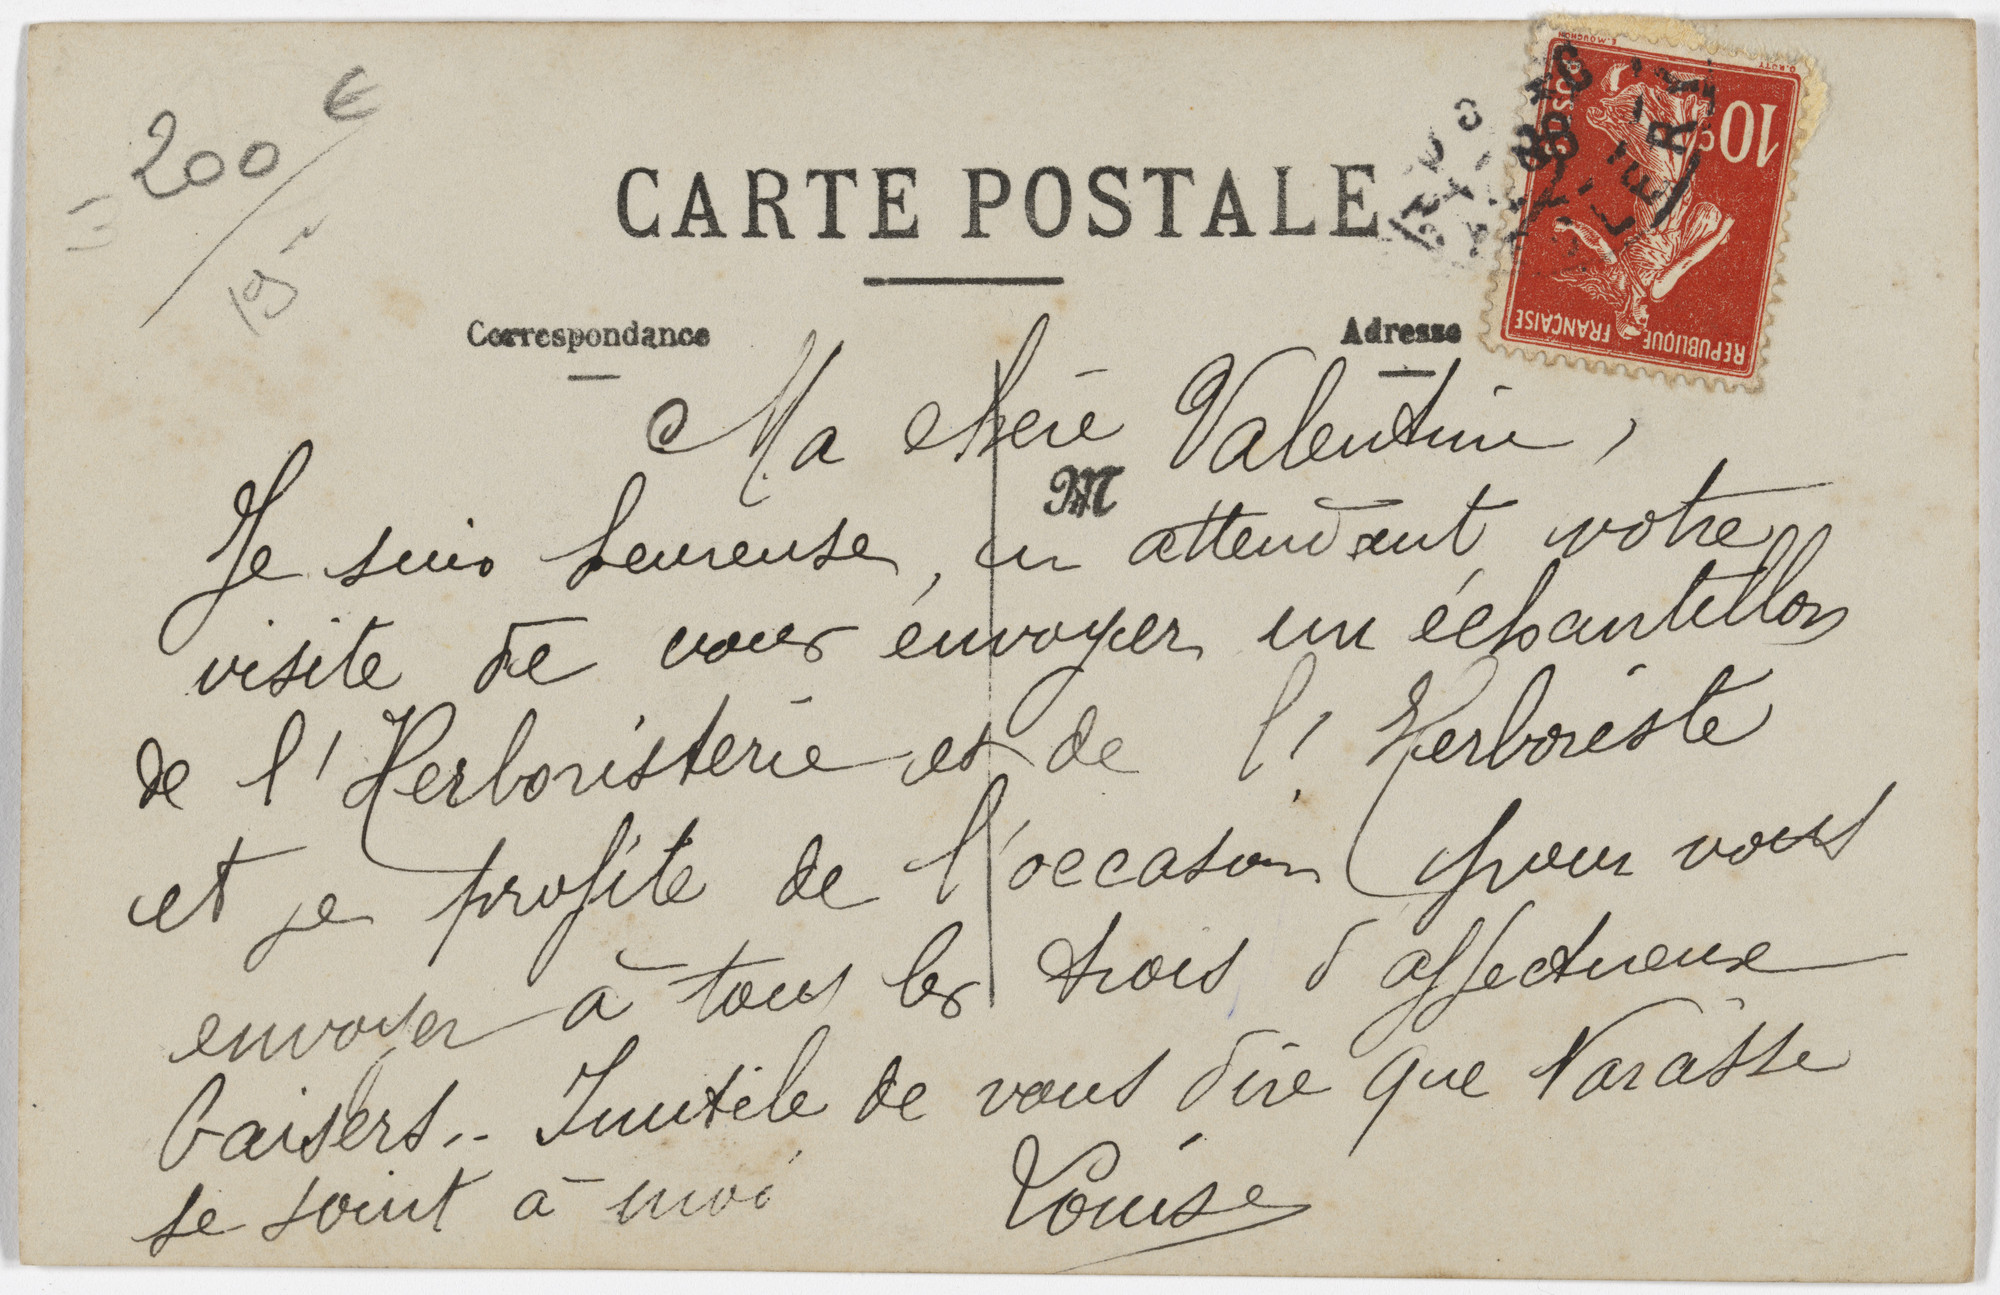 200 €
CARTE POSTALE
Correspondance
Adresse
10c
POSTES
REPUBLIQUE FRANÇAISE
E. MOUCHON
O. ROTY
M
Ma chère Valentine,
Je suis heureuse, en attendant votre
visite de vous envoyer un échantillon
de l'Herboristerie et de l'Herboriste
et je profite de l'occasion pour vous
envoyer à tous les trois d'affectueux
baisers.. Inutile de vous dire que Narasse
se joint à moi
Louise